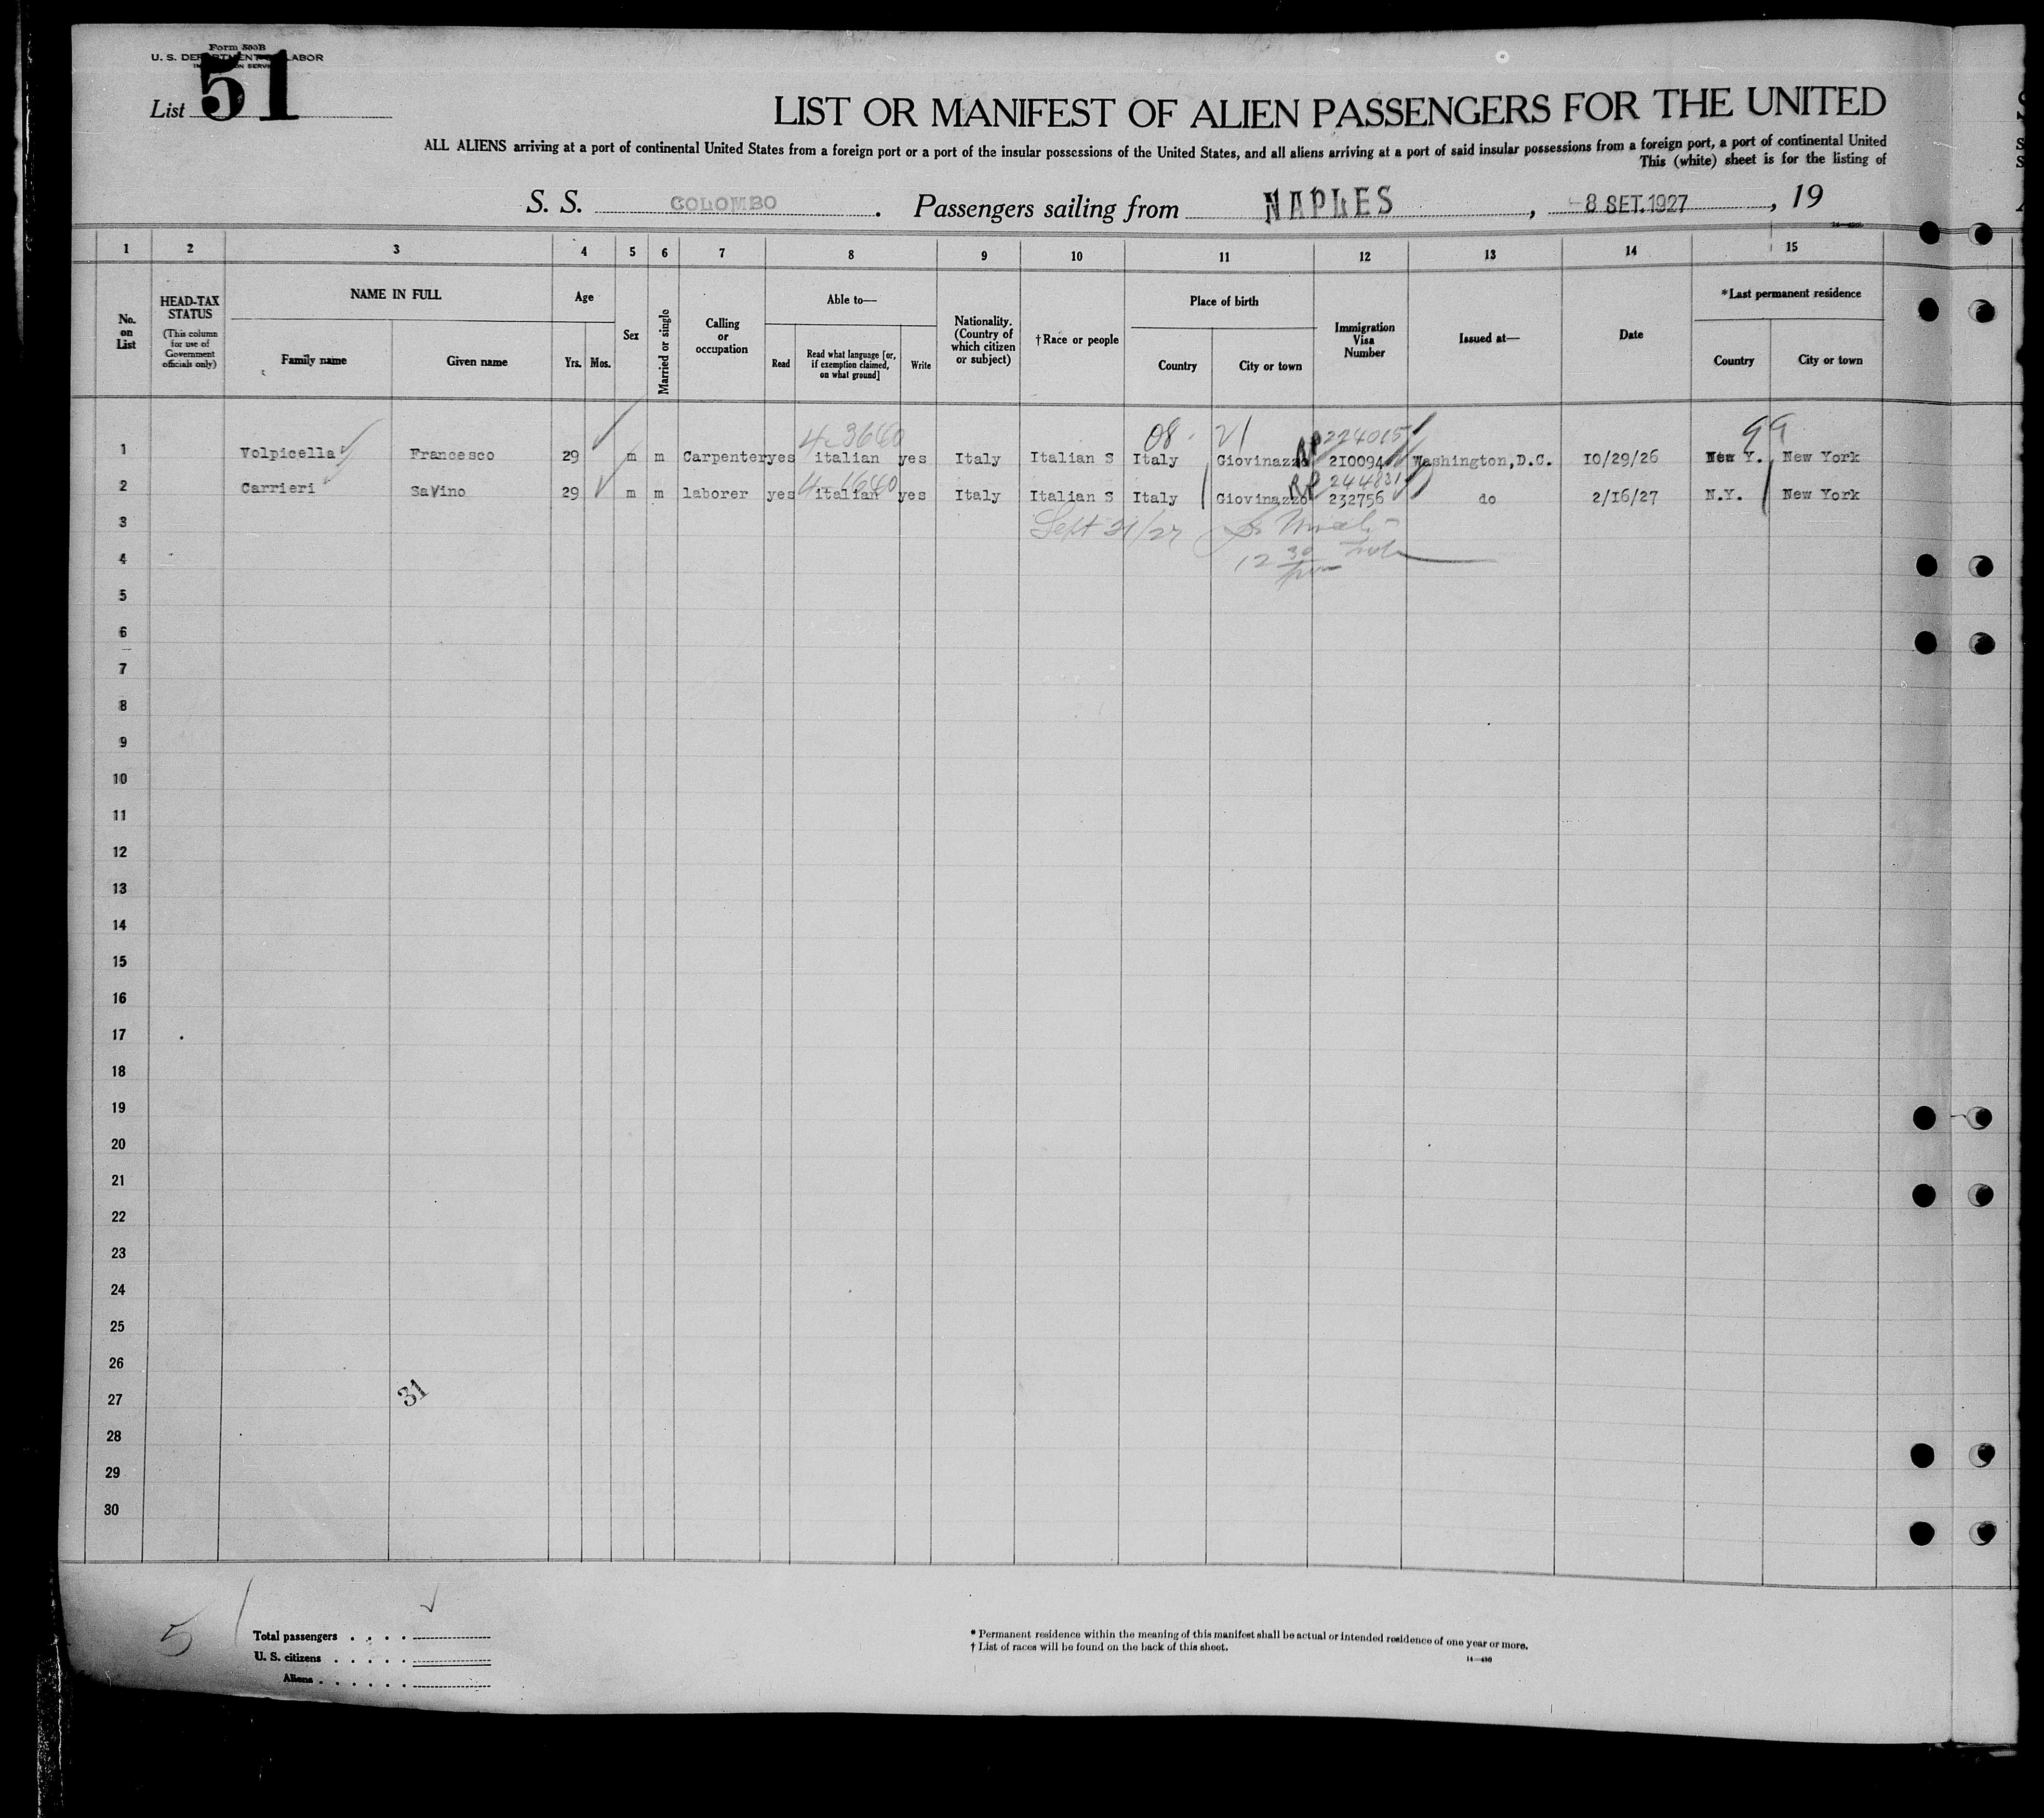 Form 500B
U. S. DEPARTMENT OF LABOR
List 51
LIST OR MANIFEST OF ALIEN PASSENGERS FOR THE UNITED
ALL ALIENS arriving at a port of continental United States from a foreign port or a port of the insular possessions of the United States, and all aliens arriving at a port of said insular possessions from a foreign port, a port of continental United
This (white) sheet is for the listing of
S. S. COLOMBO. Passengers sailing from NAPLES, -8 SET.1927, 19
1 2 3 4 5 6 7 8 9 10 11 12 13 14 15
No. on List
HEAD-TAX STATUS (This column for use of Government officials only)
NAME IN FULL
Family name Given name
Age
Yrs. Mos.
Sex
Married or single
Calling or occupation
Able to—
Read
Read what language [or, if exemption claimed, on what ground]
Write
Nationality. (Country of which citizen or subject)
†Race or people
Place of birth
Country City or town
Immigration Visa Number
Issued at—
Date
*Last permanent residence
Country City or town
4-3640 08 - 21 RP 224015 99
1 Volpicella Francesco 29 m m Carpenter yes italian yes Italy Italian S Italy Giovinazzo 210094 Washington,D.C. 10/29/26 New Y. New York
4-1640 RP 244831
2 Carrieri SaVino 29 m m laborer yes italian yes Italy Italian S Italy Giovinazzo 232756 do 2/16/27 N.Y. New York
3 Sept 21/27
4 12 30
5
6
7
8
9
10
11
12
13
14
15
16
17
18
19
20
21
22
23
24
25
26
27 31
28
29
30
5
Total passengers . . . .
U. S. citizens . . . . .
Aliens . . . . . .
* Permanent residence within the meaning of this manifest shall be actual or intended residence of one year or more.
† List of races will be found on the back of this sheet.
14—430